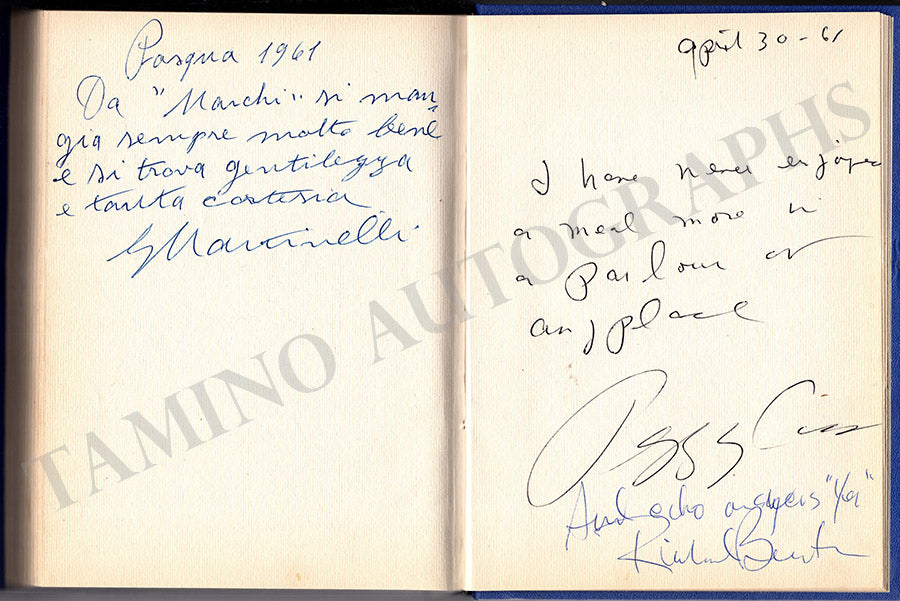 Pasqua 1961
Da "Marchi" si man-
gia sempre molto bene
e si trova gentilezza
e tanta cortesia
GMartinelli
April 30-61
I have never enjoyed
a meal more in
a Parlour or
any place
Peggy Cass
And echo answers "Ya"
TAMINO AUTOGRAPHS